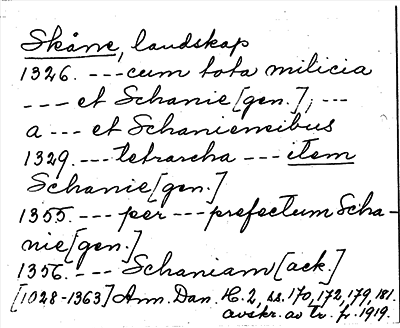 Skåne, landskap
1326. --- cum tota milicia
--- et Schanie [gen.], ---
a --- et Schaniensibus
1329. --- tetrarcha --- item
Schanie [gen.]
1355. --- per --- prefectum Scha-
nie [gen.]
1356. --- Schaniam [ack.]
[1028-1363] Ann. Dan. H. 2, ss. 170, 172, 179, 181.
avskr. av tr. fr. 1919.